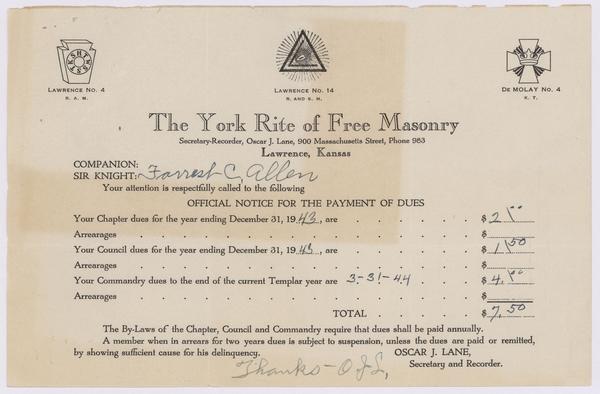 HTWSSTKS
LAWRENCE NO. 4
R. A. M.
LAWRENCE NO. 14
R. AND S. M.
DE MOLAY NO. 4
K. T.
The York Rite of Free Masonry
Secretary-Recorder, Oscar J. Lane, 900 Massachusetts Street, Phone 983
Lawrence, Kansas
COMPANION:
SIR KNIGHT: Forrest C. Allen
Your attention is respectfully called to the following
OFFICIAL NOTICE FOR THE PAYMENT OF DUES
Your Chapter dues for the year ending December 31, 1943, are . . . . . . $ 2.00
Arrearages . . . . . . . . . . . . . $
Your Council dues for the year ending December 31, 1943, are . . . . . . $ 1.50
Arrearages . . . . . . . . . . . . . $
Your Commandry dues to the end of the current Templar year are 3-31-44 . . . $ 4.00
Arrearages . . . . . . . . . . . . . $
TOTAL . . . . . $ 7.50
The By-Laws of the Chapter, Council and Commandry require that dues shall be paid annually.
A member when in arrears for two years dues is subject to suspension, unless the dues are paid or remitted,
by showing sufficient cause for his delinquency. OSCAR J. LANE,
Thanks - O J L, Secretary and Recorder.